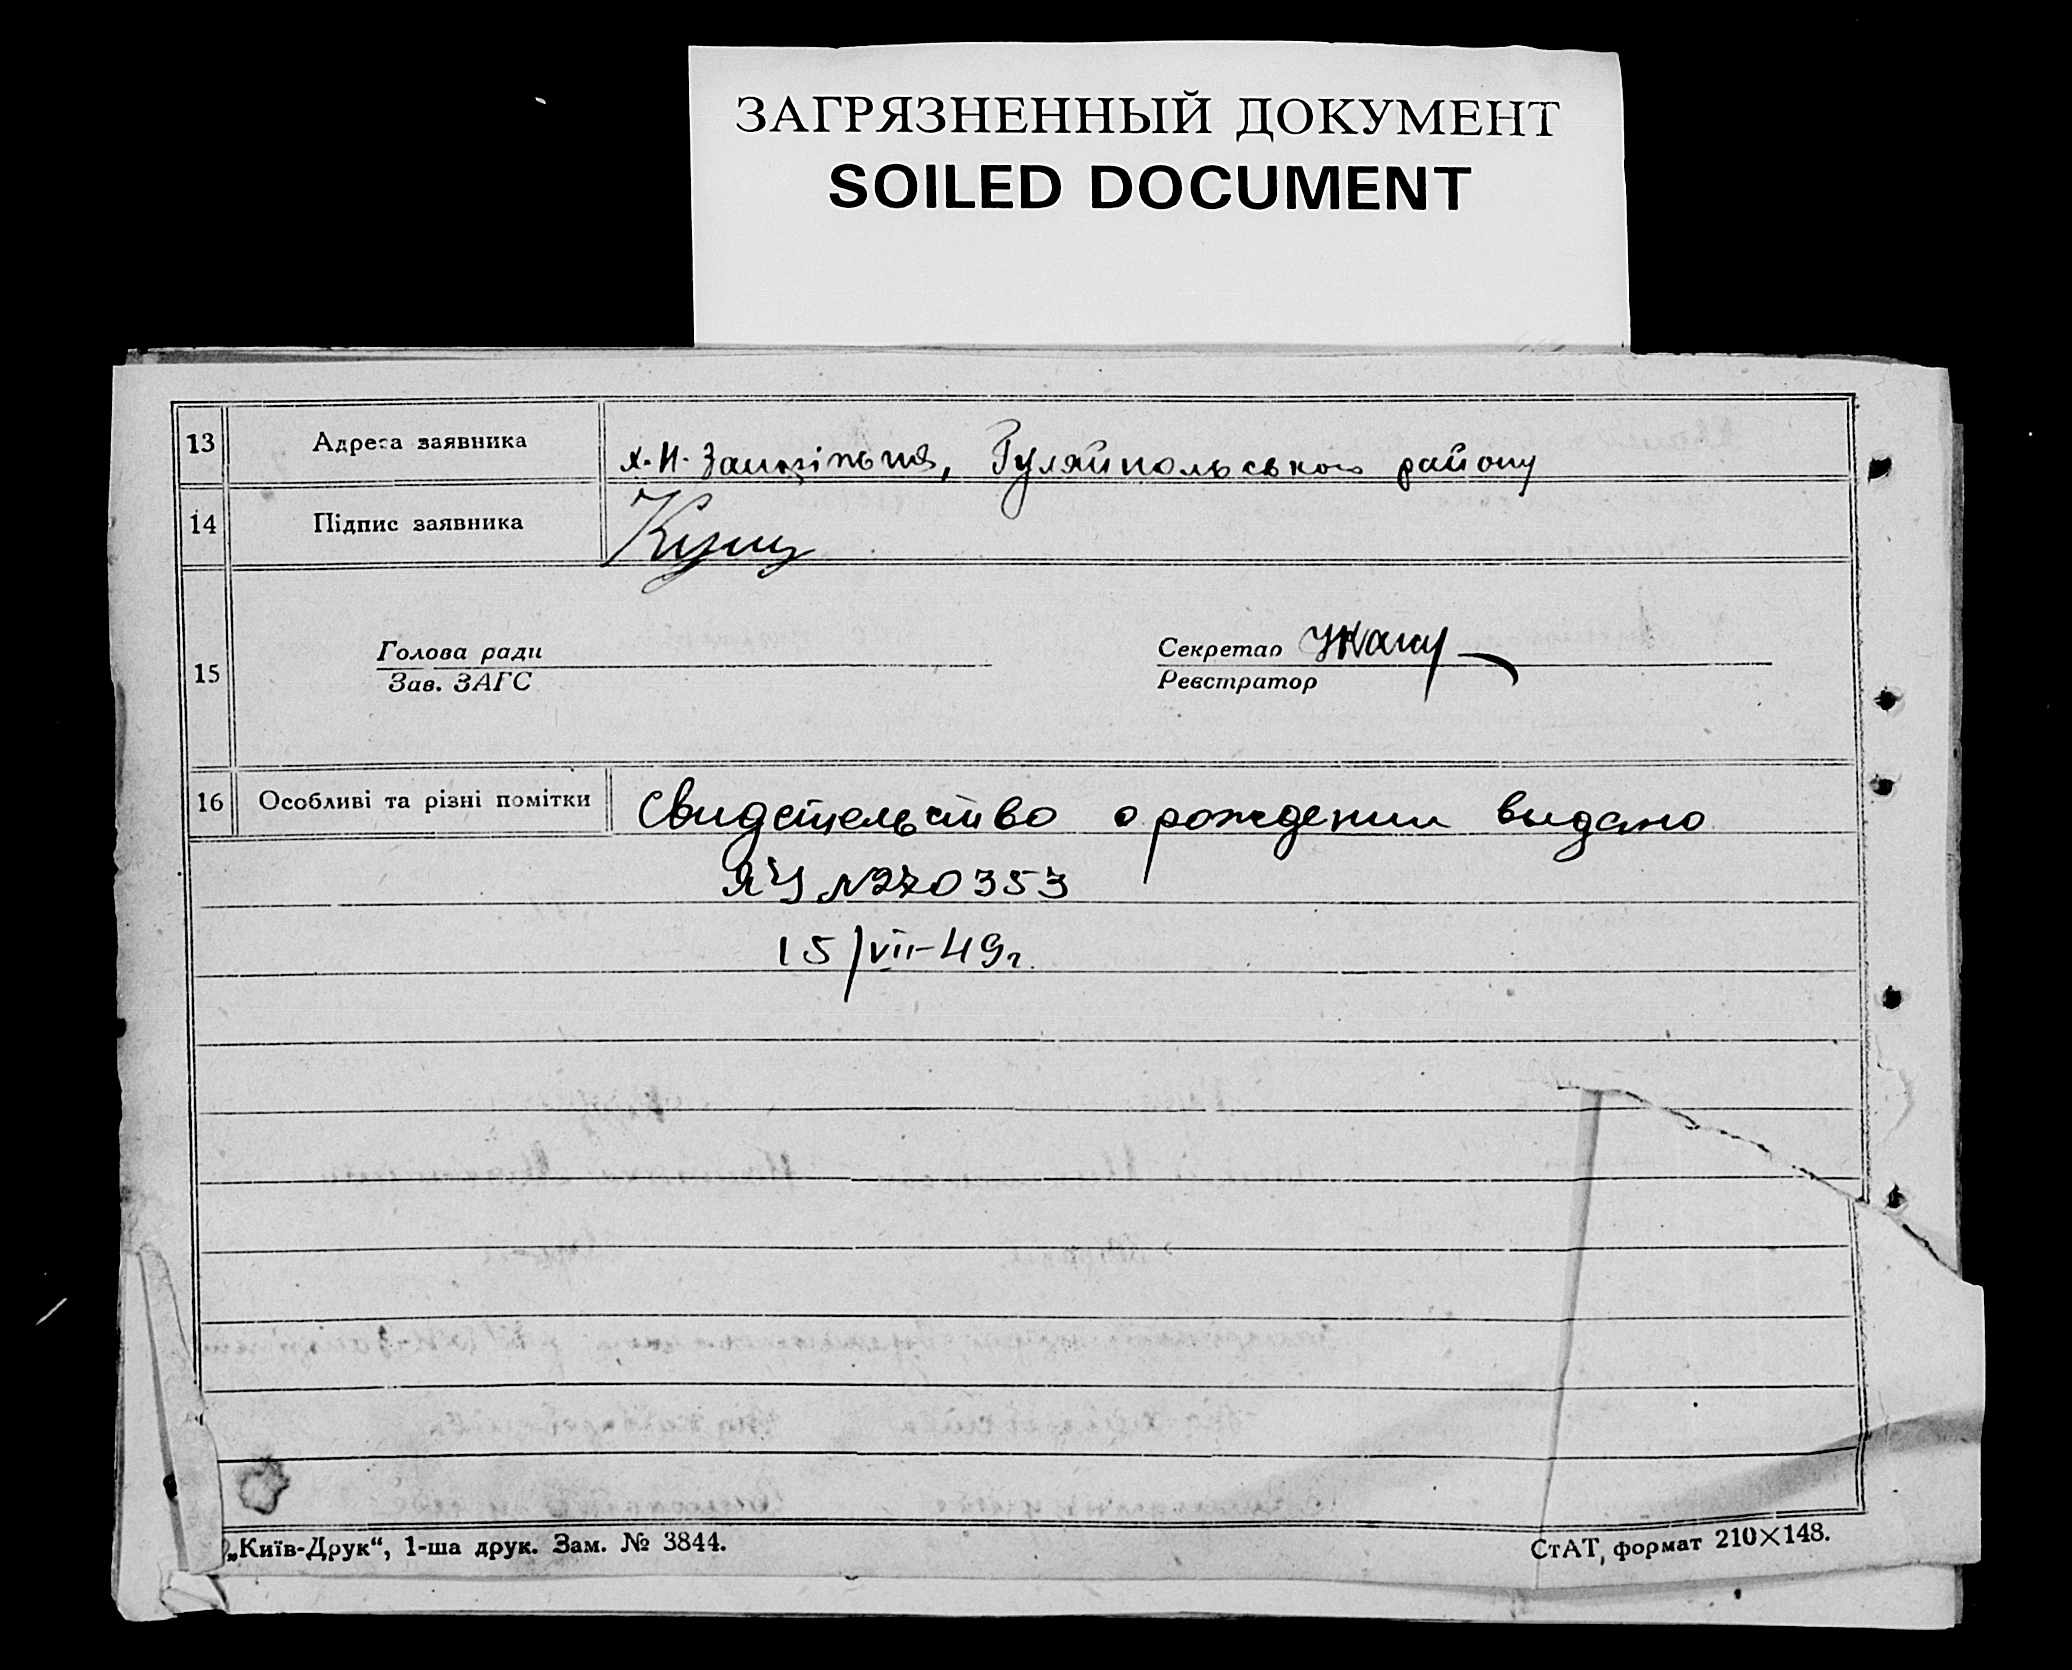 ЗАГРЯЗНЕННЫЙ ДОКУМЕНТ
SOILED DOCUMENT
13 Адреса заявника х. Н. Запорілля, Гуляйпольського району
14 Підпис заявника Кущ
15 Голова ради Секретар
Зав. ЗАГС Реєстратор
16 Особливі та різні помітки Свидетельство о рождении выдано
ЯЧ №270353
15/VII-49г.
„Київ-Друк“, 1-ша друк. Зам. № 3844. СтАТ, формат 210×148.